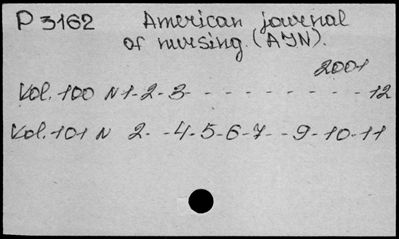 P 3162 American journal
of nursing. (AJN).
2001
Vol. 100 N 1-2-3- - - - - - - - - 12
Vol. 101 N 2- -4-5-6-7- -9-10-11